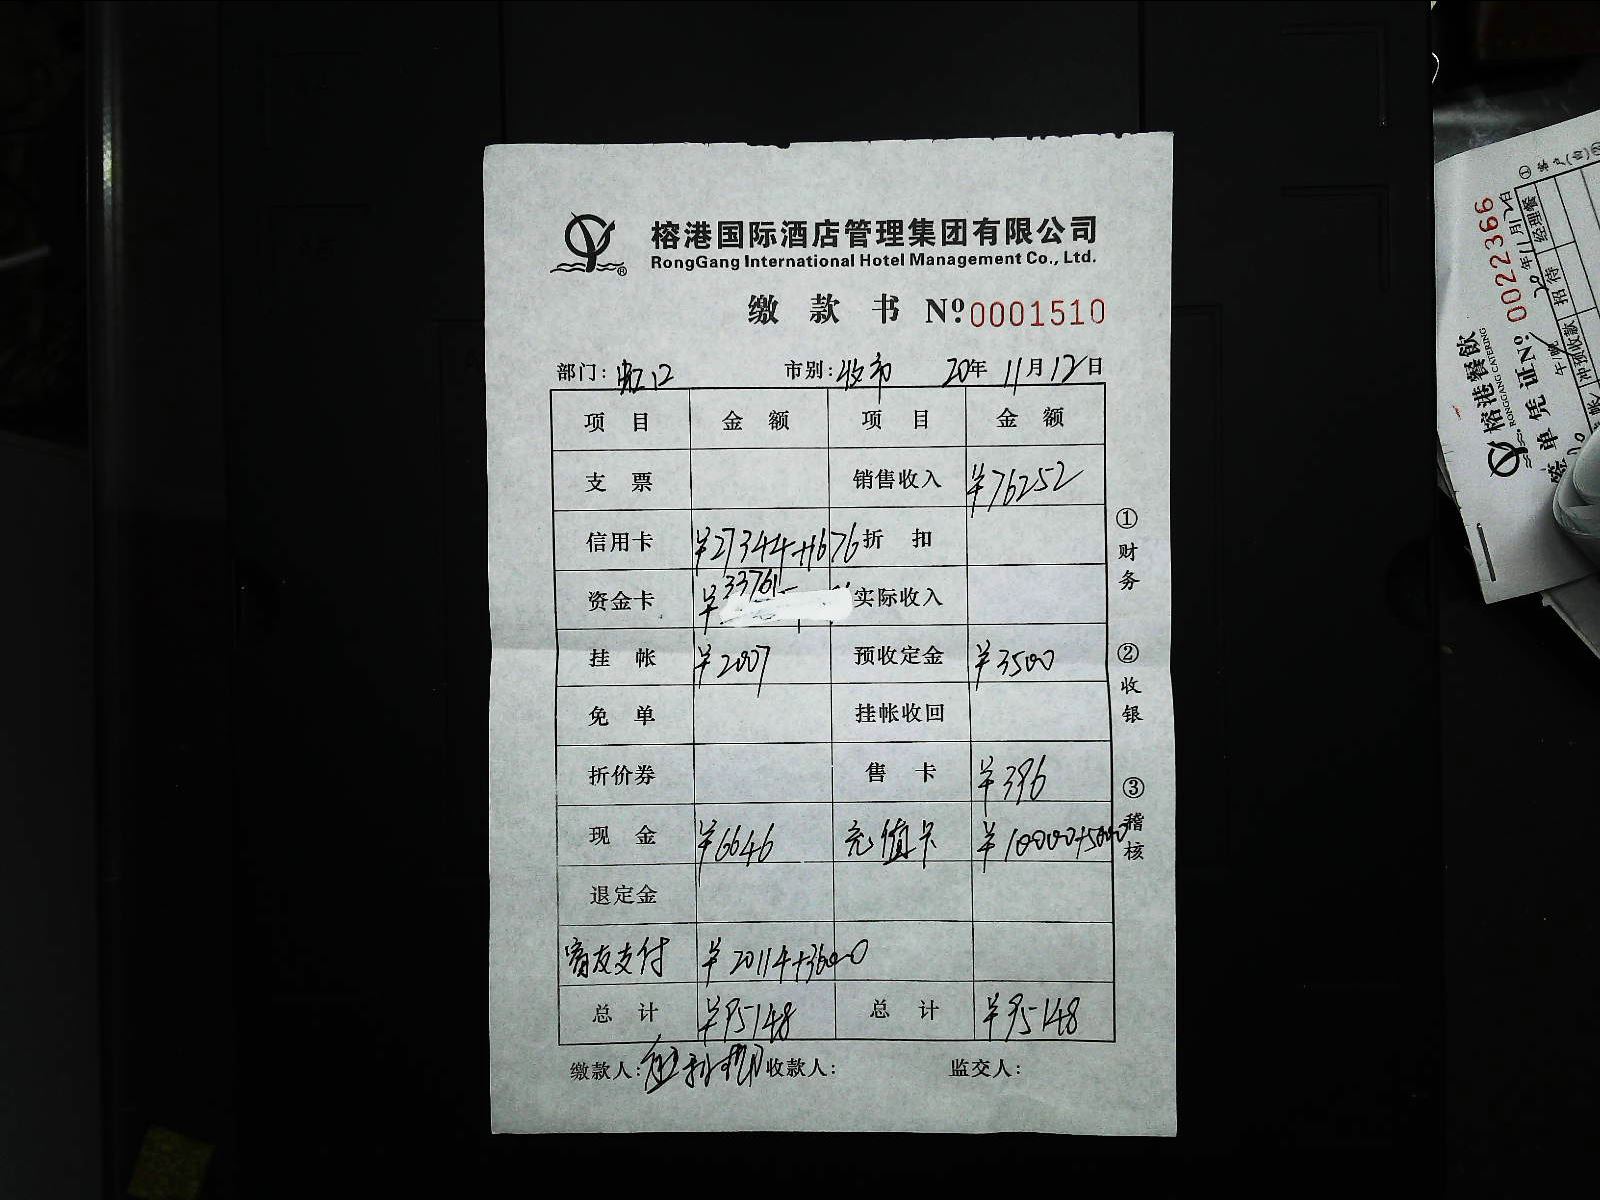 榕港国际酒店管理集团有限公司
RongGang International Hotel Management Co., Ltd.
缴款书 Nº 0001510
部门: 虹口 市别: 收市 20年 11月 12日
项目 金额 项目 金额
支票 销售收入 ¥76252
信用卡 ¥27344+1676 折扣
资金卡 ¥33761 实际收入
挂帐 ¥2007 预收定金 ¥3500
免单 挂帐收回
折价券 售卡 ¥396
现金 ¥6646 充值卡 ¥10000+5000
退定金
支付 ¥20114+3600
总计 ¥95148 总计 ¥95148
缴款人: 收款人: 监交人:
①财务
②收银
③稽核
榕港餐飲
RONGGANG CATERING
签单凭证 Nº: 0022366
20年11月12日
招待 经理餐
冲预收款